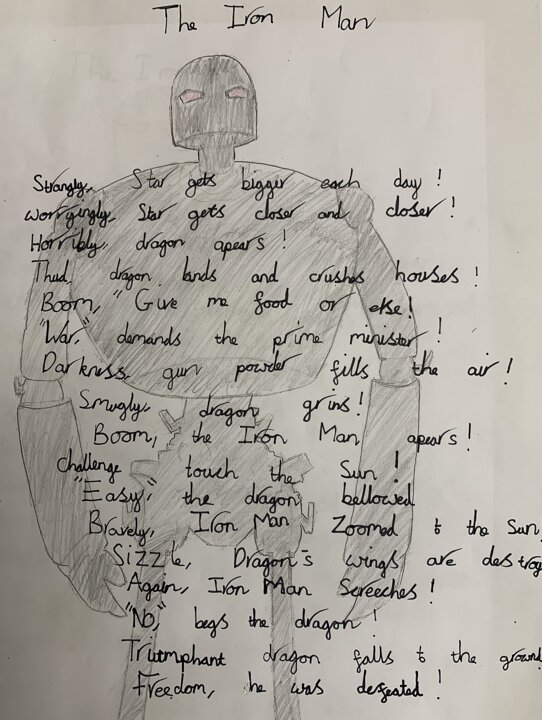 The Iron Man
Strangly, Star gets bigger each day !
worryingly, Star gets closer and closer !
Horribly, dragon apears !
Thud, dragon lands and crushes houses !
Boom, "Give me food or else!
"War," demands the prime minister !
Darkness, gun powder fills the air !
Smugly, dragon grins !
Boom, the Iron Man apears !
challenge touch the Sun !
"Easy," the dragon bellowed
Bravely, Iron Man Zoomed to the Sun
Sizzle, Dragon's wings are destroy
Again, Iron Man Screeches !
"No," begs the dragon !
Triutmphant dragon falls to the ground
Freedom, he was defeated !